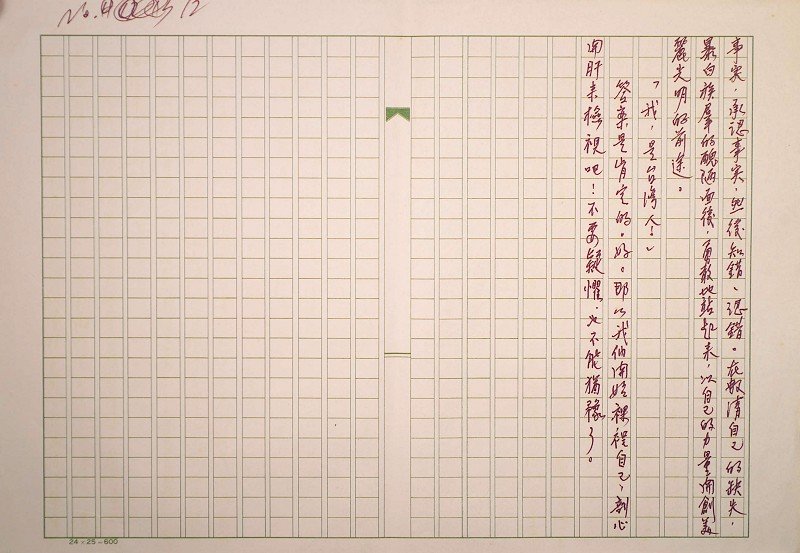 No. 12
事実，承認事実，然後知錯、認錯。在敢清自己的缺失，
暴白族羣的醜陋面後，勇敢地站起来，以自己的力量開創美
麗光明的前途。
「我，是台湾人！」
答案是肯定的。好。那以我們開始裸裎自己，剖心
開肝来検視吧！不要疑懼，也不能猶豫了。
24×25=600